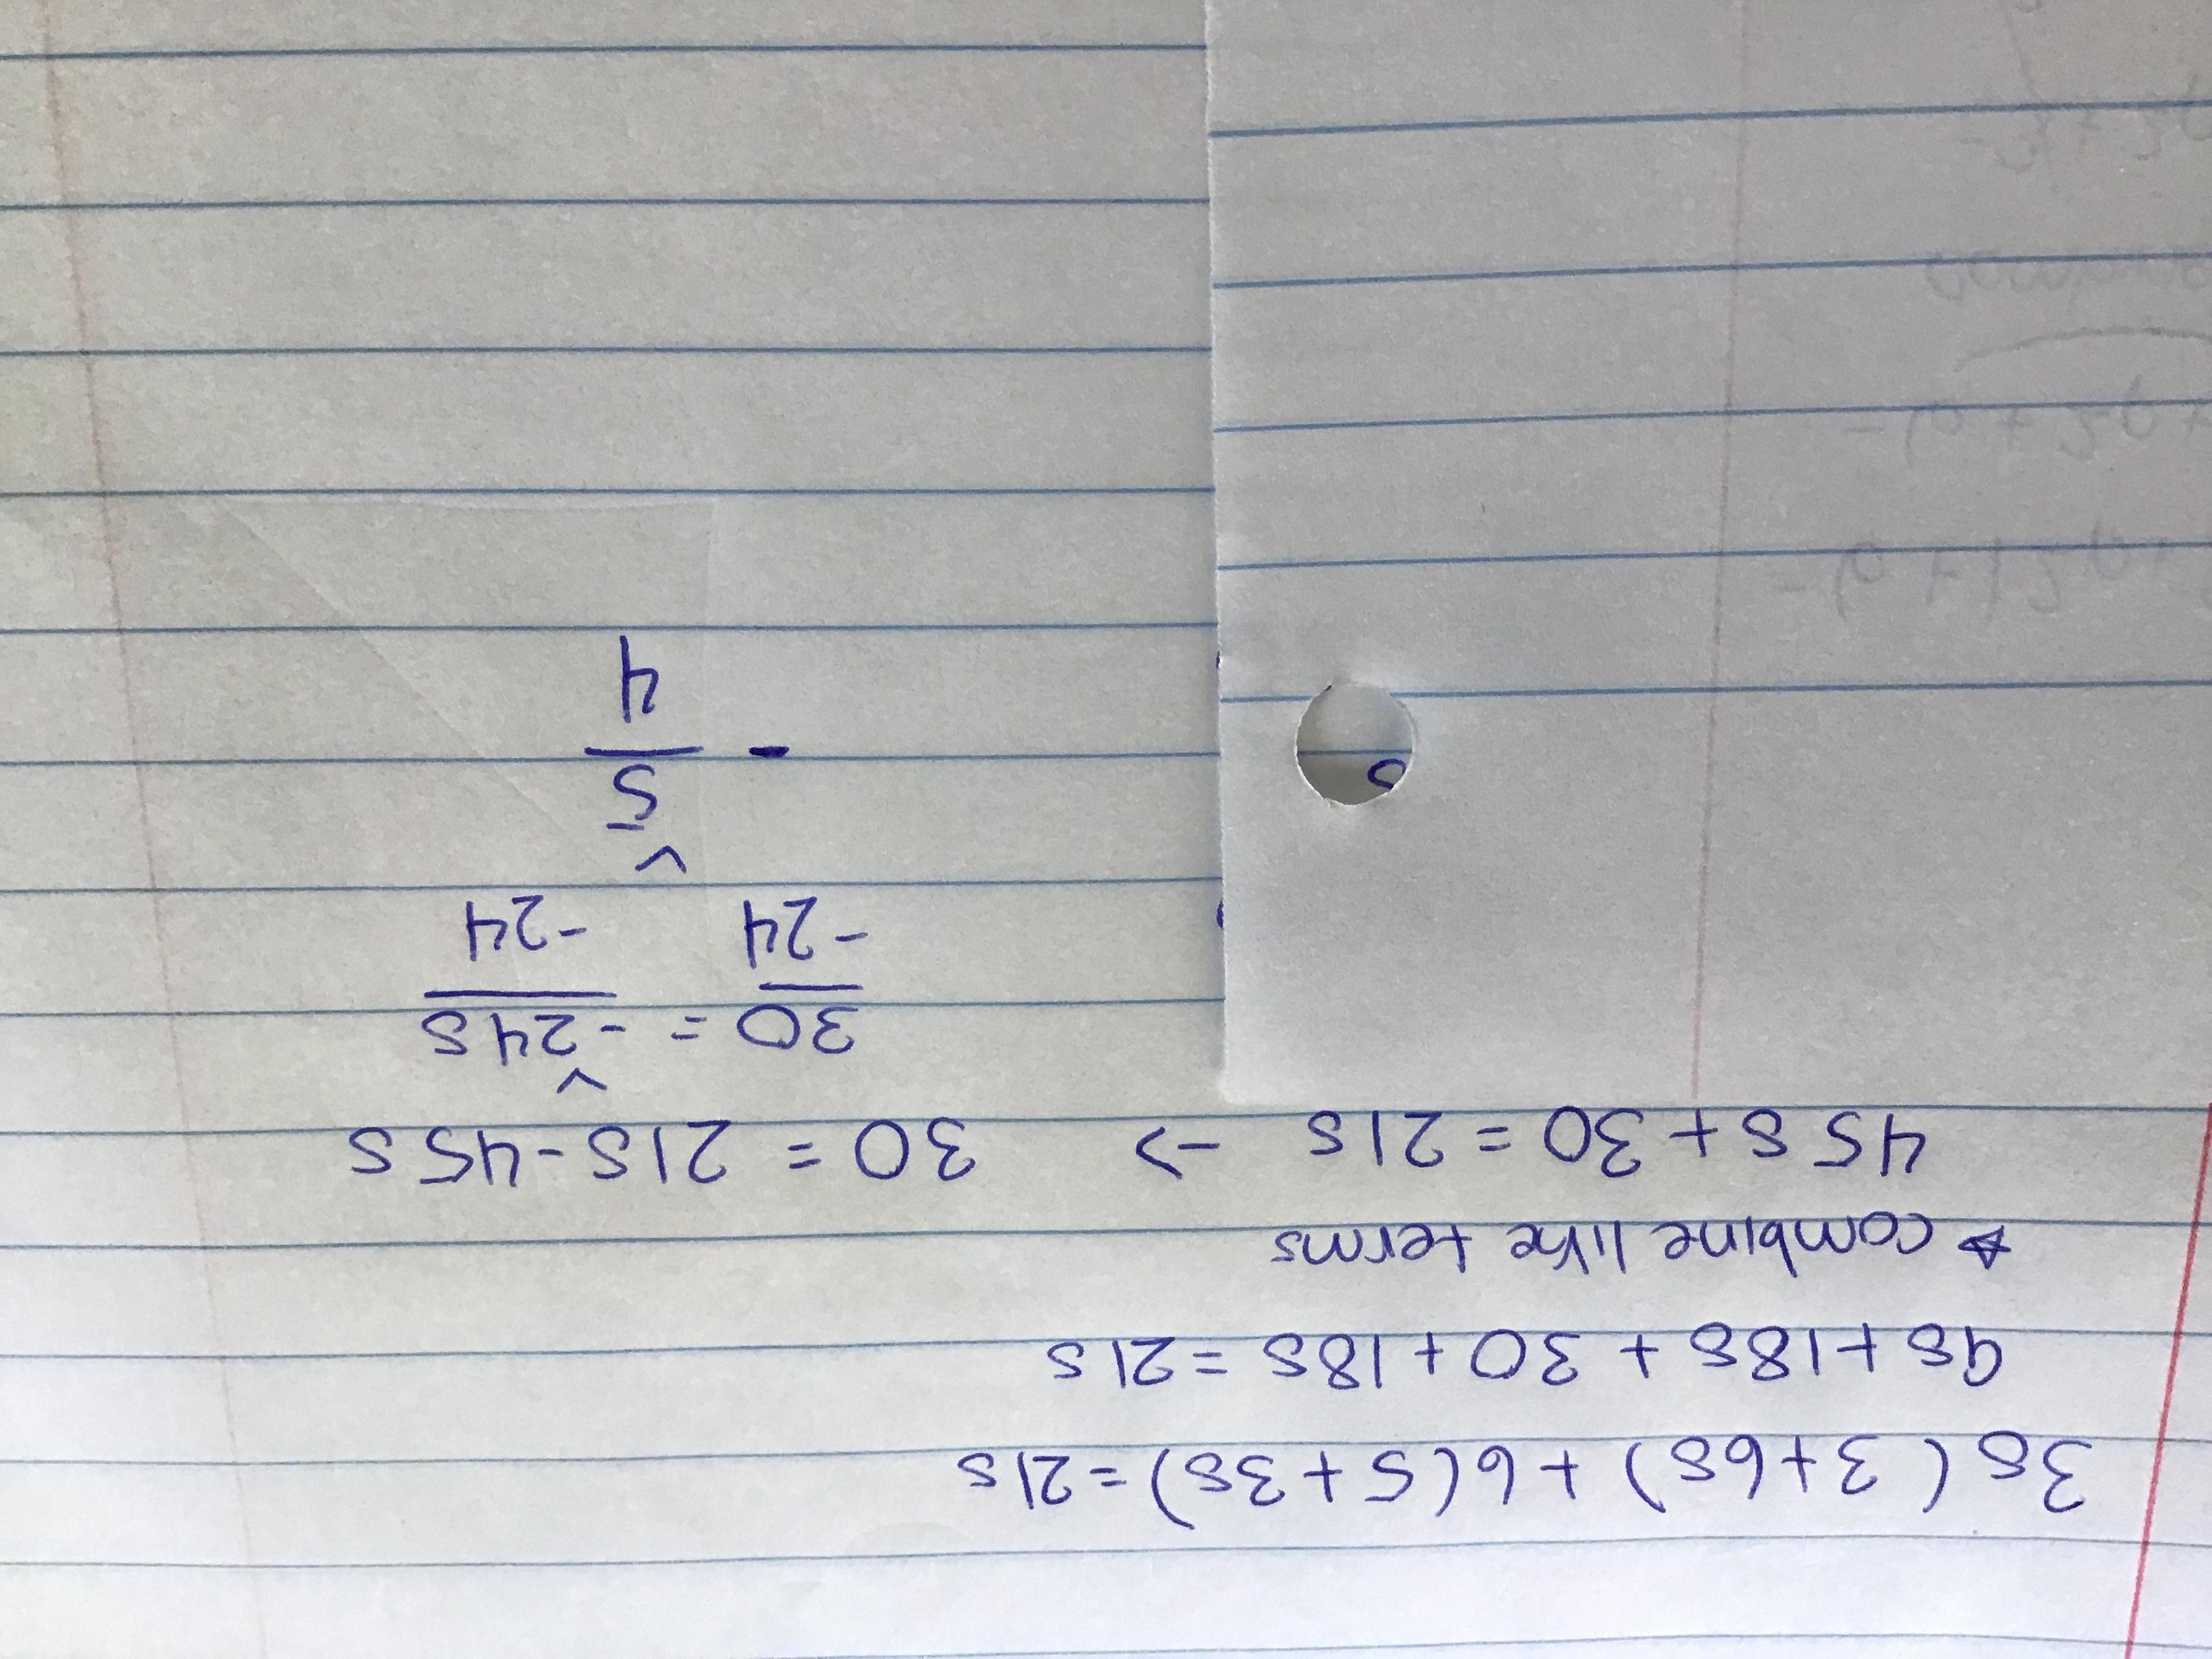 3s(3+6s)+6(5+3s)=21s
9s+18s+30+18s=21s
★combine like terms
45s+30=21s → 30=21s-45s
30/-24 = -24s/-24
-5/4